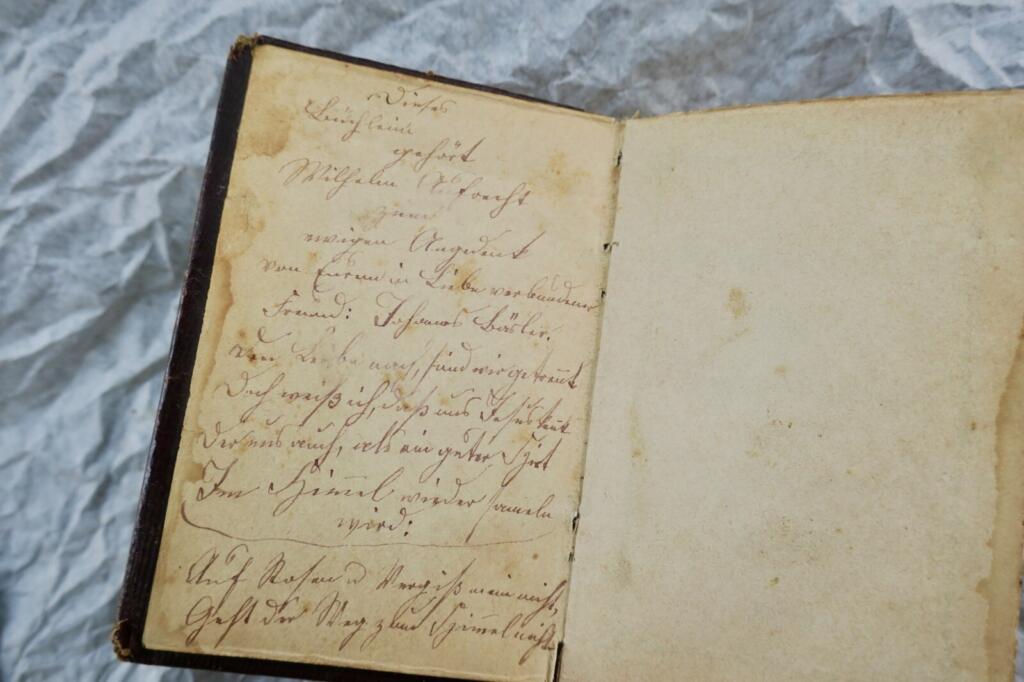 Dieses
Büchlein
gehört
Wilhelm
zum
ewigen Angedenk
von Eurem in Liebe verbundener
Freund: Johannes Bäsler.
Dem Leibe nach, sind wir getrennt
Doch weiß ich, daß uns Jesus kent
Der uns auch, als ein guter Hirt
Im Himmel wieder sameln
wird:
Auf Rosen u Vergißmeinnicht,
Geht der Weg zum Himmel nicht